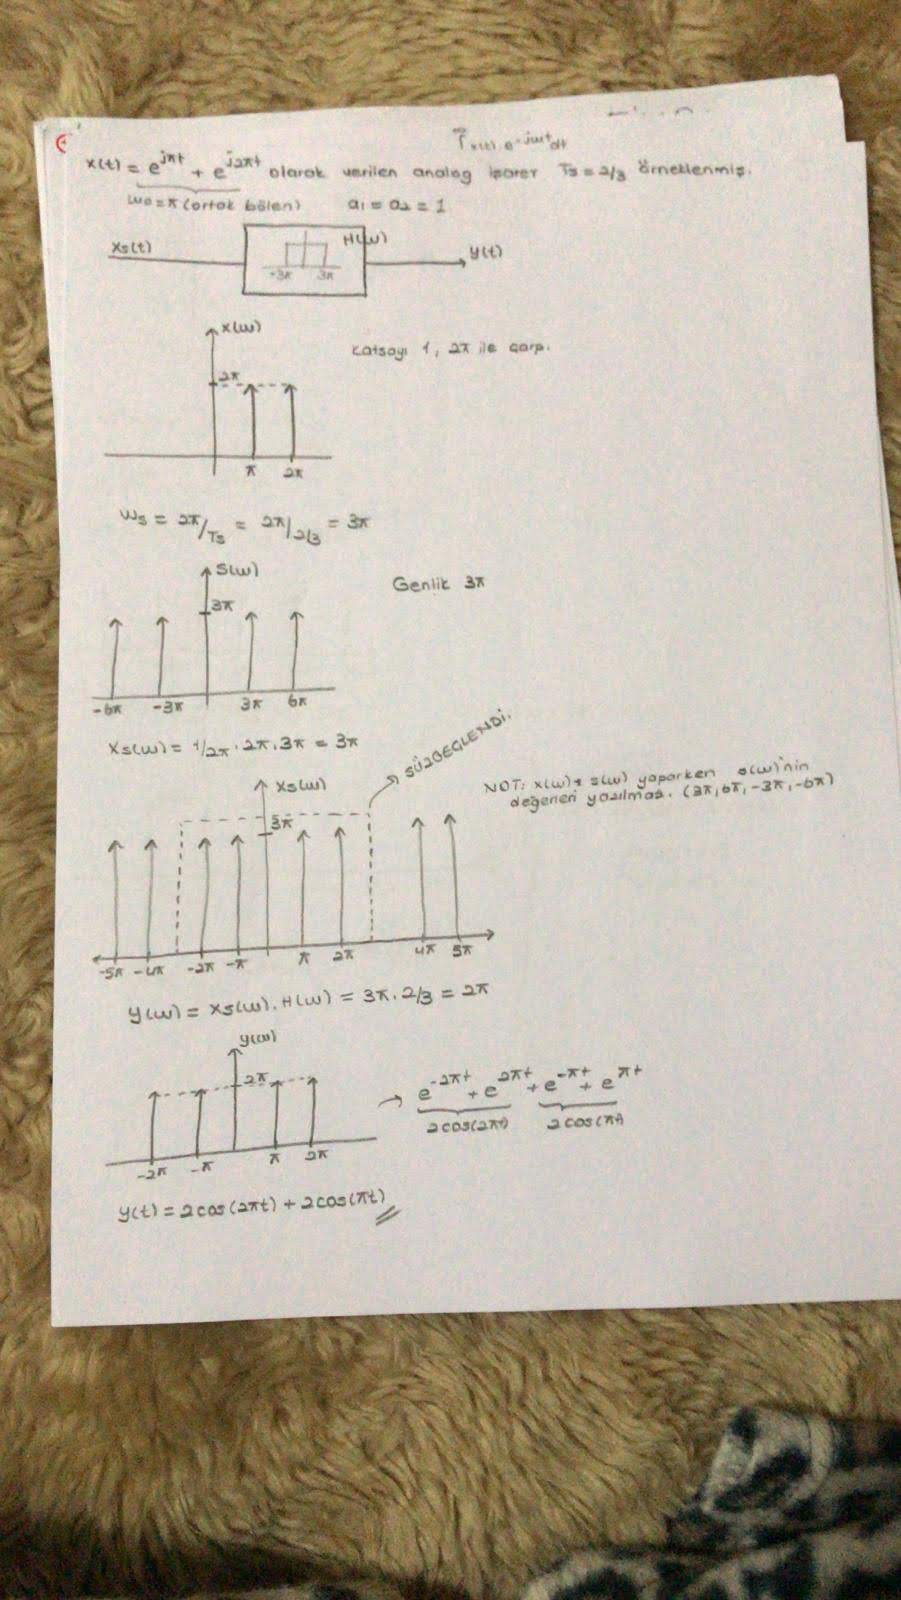 x(t) = e^jπt + e^j2πt olarak verilen analog işaret Ts = 2/3 örneklenmiş.
x(t).e^-jwt dt
w0 = π (ortak bölen)   a1 = a2 = 1
Xs(t)
H(w)
-3π 3π
y(t)
x(w)
Katsayı 1, 2π ile çarp.
2π
π 2π
Ws = 2π/Ts = 2π/2/3 = 3π
S(w)
Genlik 3π
3π
-6π -3π 3π 6π
Xs(w) = 1/2π . 2π . 3π = 3π
SÜZGEÇLENDİ.
Xs(w)
NOT: x(w) * s(w) yaparken s(w)'nin
değerleri yazılmaz. (3π, 6π, -3π, -6π)
3π
-5π -4π -2π -π π 2π 4π 5π
Y(w) = Xs(w). H(w) = 3π . 2/3 = 2π
y(w)
2π
-2π -π π 2π
e^-2πt + e^2πt + e^-πt + e^πt
2cos(2πt) 2cos(πt)
y(t) = 2cos(2πt) + 2cos(πt)